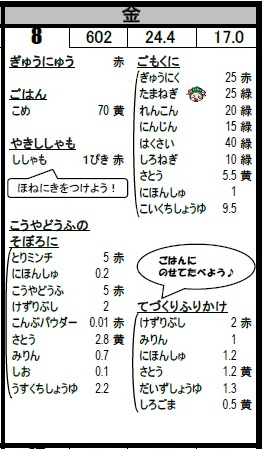 金
8 602 24.4 17.0
ぎゅうにゅう 赤
ごはん
こめ 70 黄
やきししゃも
ししゃも 1ぴき 赤
ほねにきをつけよう！
こうやどうふの
そぼろに
とりミンチ 5 赤
にほんしゅ 0.2
こうやどうふ 5 赤
けずりぶし 2
こんぶパウダー 0.01 赤
さとう 2.8 黄
みりん 0.7
しお 0.1
うすくちしょうゆ 2.2
ごもくに
ぎゅうにく 25 赤
たまねぎ 25 緑
れんこん 20 緑
にんじん 15 緑
はくさい 40 緑
しろねぎ 10 緑
さとう 5.5 黄
にほんしゅ 1
こいくちしょうゆ 9.5
ごはんに
のせてたべよう♪
てづくりふりかけ
けずりぶし 2 赤
みりん 1
にほんしゅ 1.2
さとう 1.2 黄
だいずしょうゆ 1.3
しろごま 0.5 黄